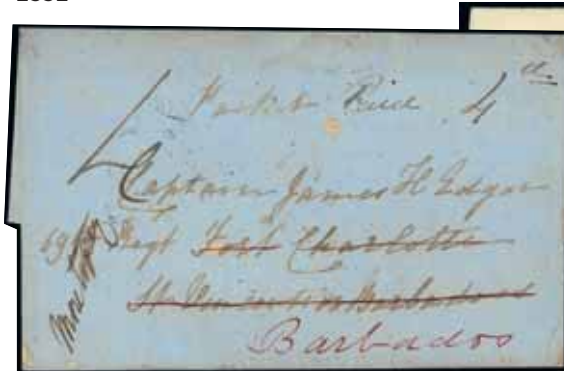 4
Packet 4d
Captain James H Edgar
69th Regt Fort Charlotte
St Vincent Barbados
Barbados